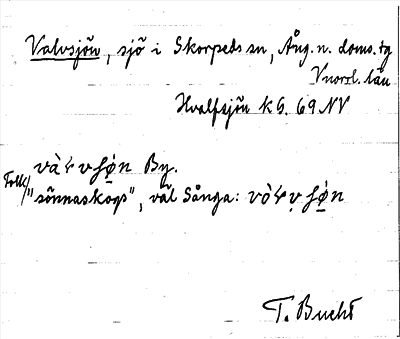 Valvsjön, sjö i Skorpeds sn, Ång. n. doms. tg
Vnorrl. län
Hvalfsjön kG. 69 NV
vàⱶvʃø̀n By.
Folk/"sönnaskogs", väl Sånga: vòⱶvʃø̀n
T. Bucht